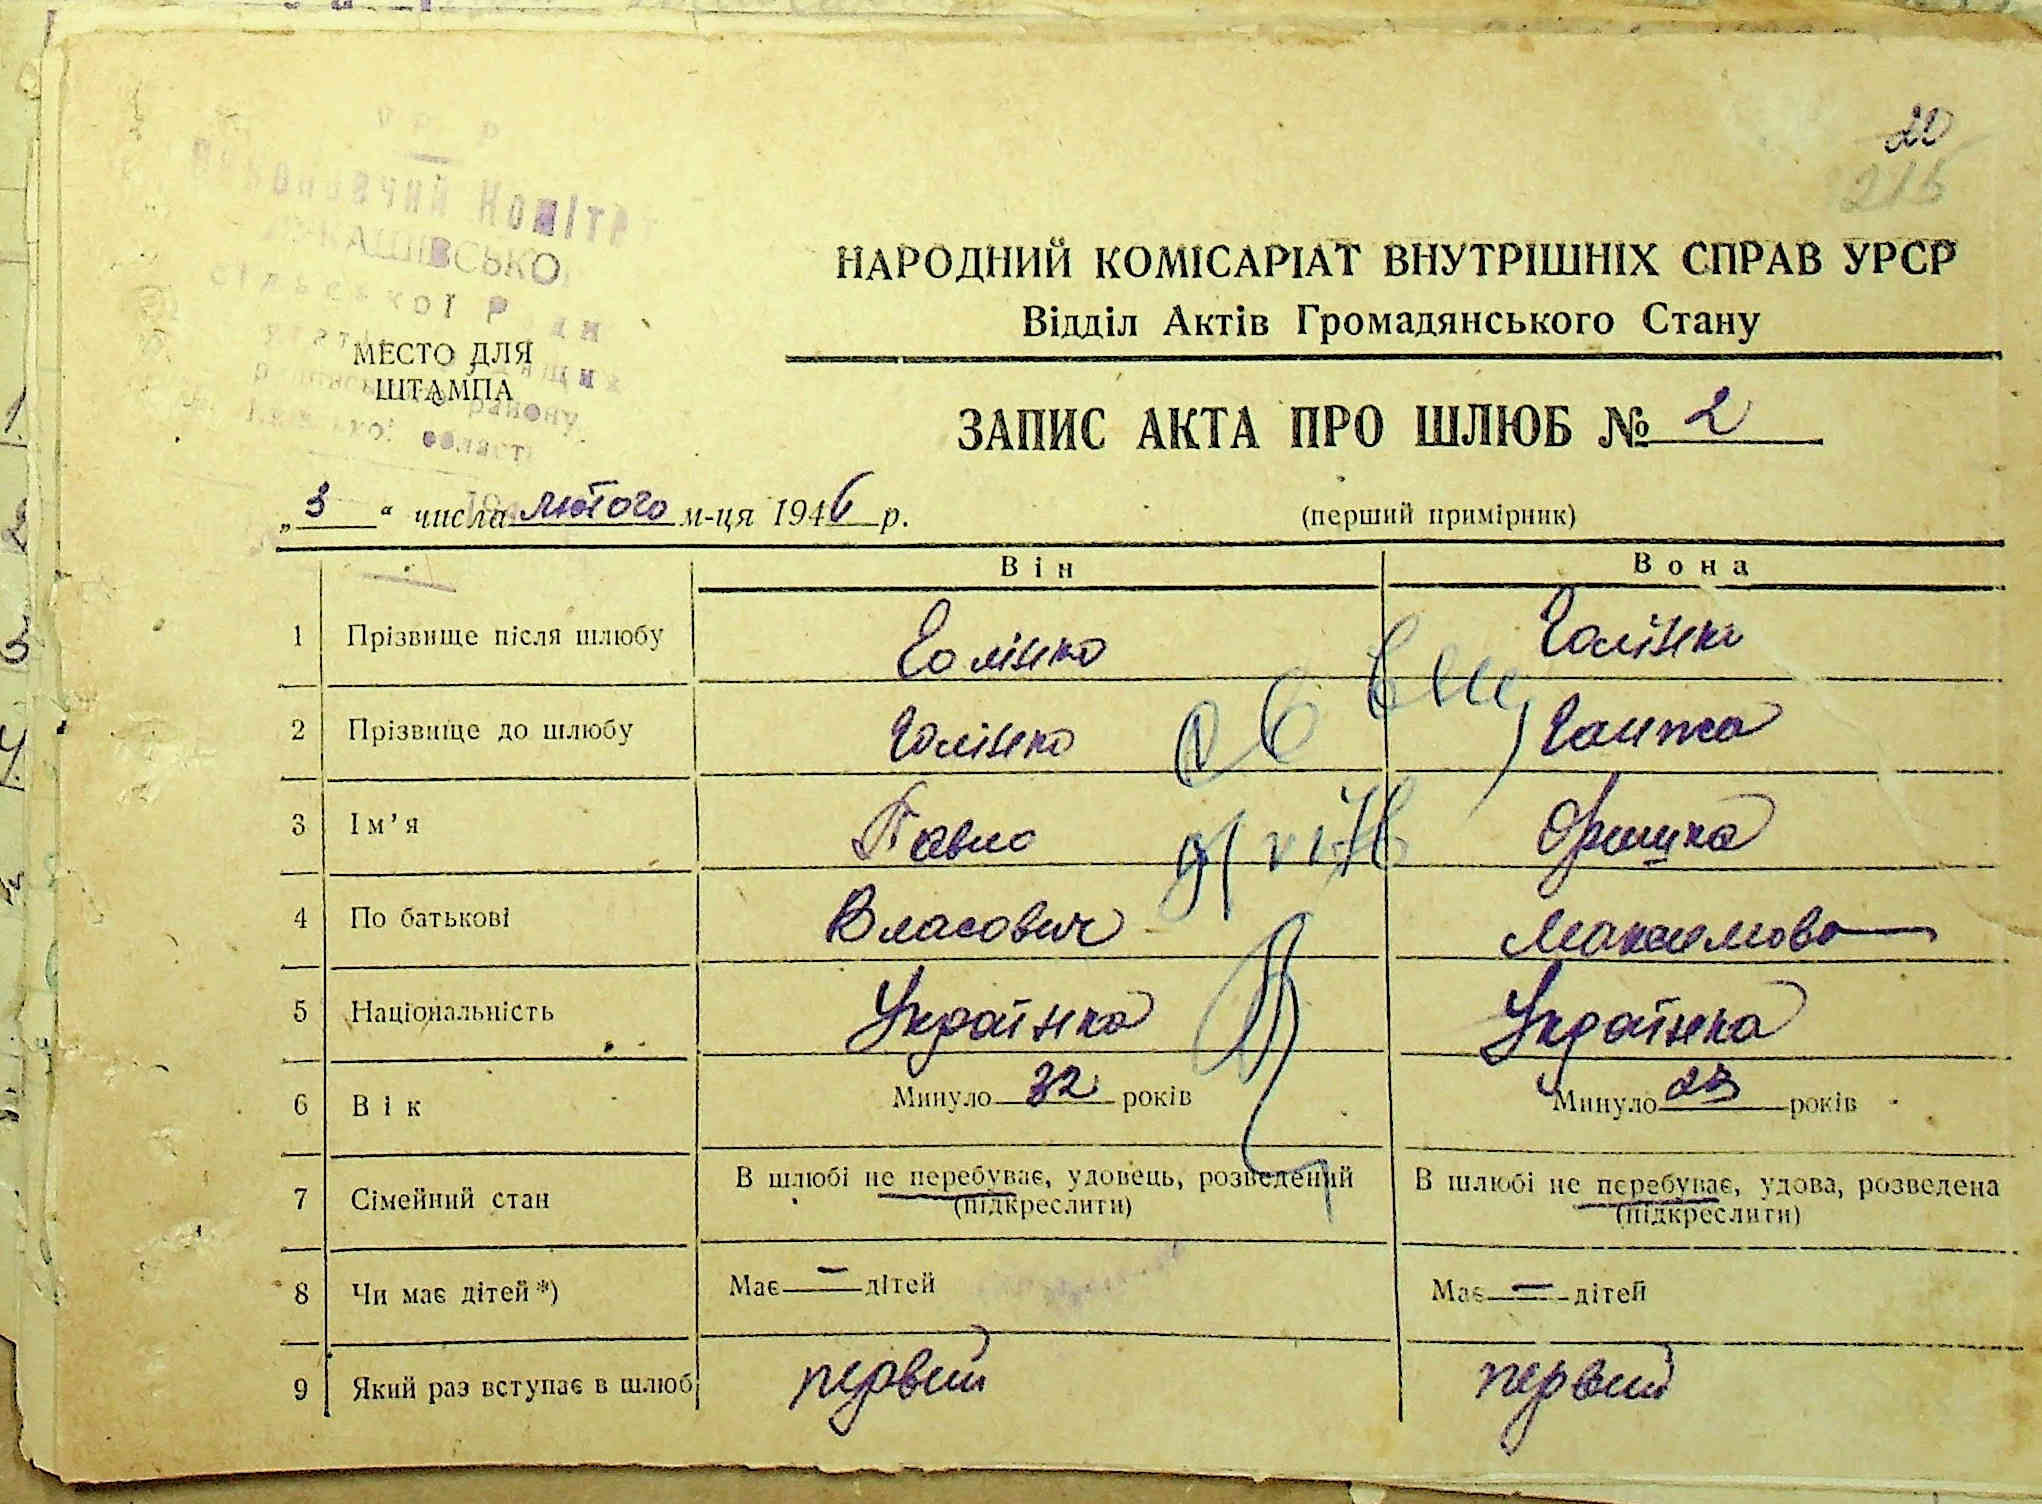 УРСР
Виконавчий Комітет
ЛУКАШІВСЬКОЇ
сільської Ради
району
області
22
215
НАРОДНИЙ КОМІСАРІАТ ВНУТРІШНІХ СПРАВ УРСР
Відділ Актів Громадянського Стану
МЕСТО ДЛЯ
ШТАМПА
ЗАПИС АКТА ПРО ШЛЮБ № 2
„3“ числа лютого м-ця 1946 р.
(перший примірник)
Він Вона
1 Прізвище після шлюбу Голінко Голінко
2 Прізвище до шлюбу Голінко Ганжа
3 Ім'я Павло Оришка
4 По батькові Власович Максимова
5 Національність Українка Українка
6 Вік Минуло 32 років Минуло 23 років
7 Сімейний стан В шлюбі не перебуває, удовець, розведений В шлюбі не перебуває, удова, розведена
(підкреслити) (підкреслити)
8 Чи має дітей*) Має — дітей Має — дітей
9 Який раз вступає в шлюб первий первий